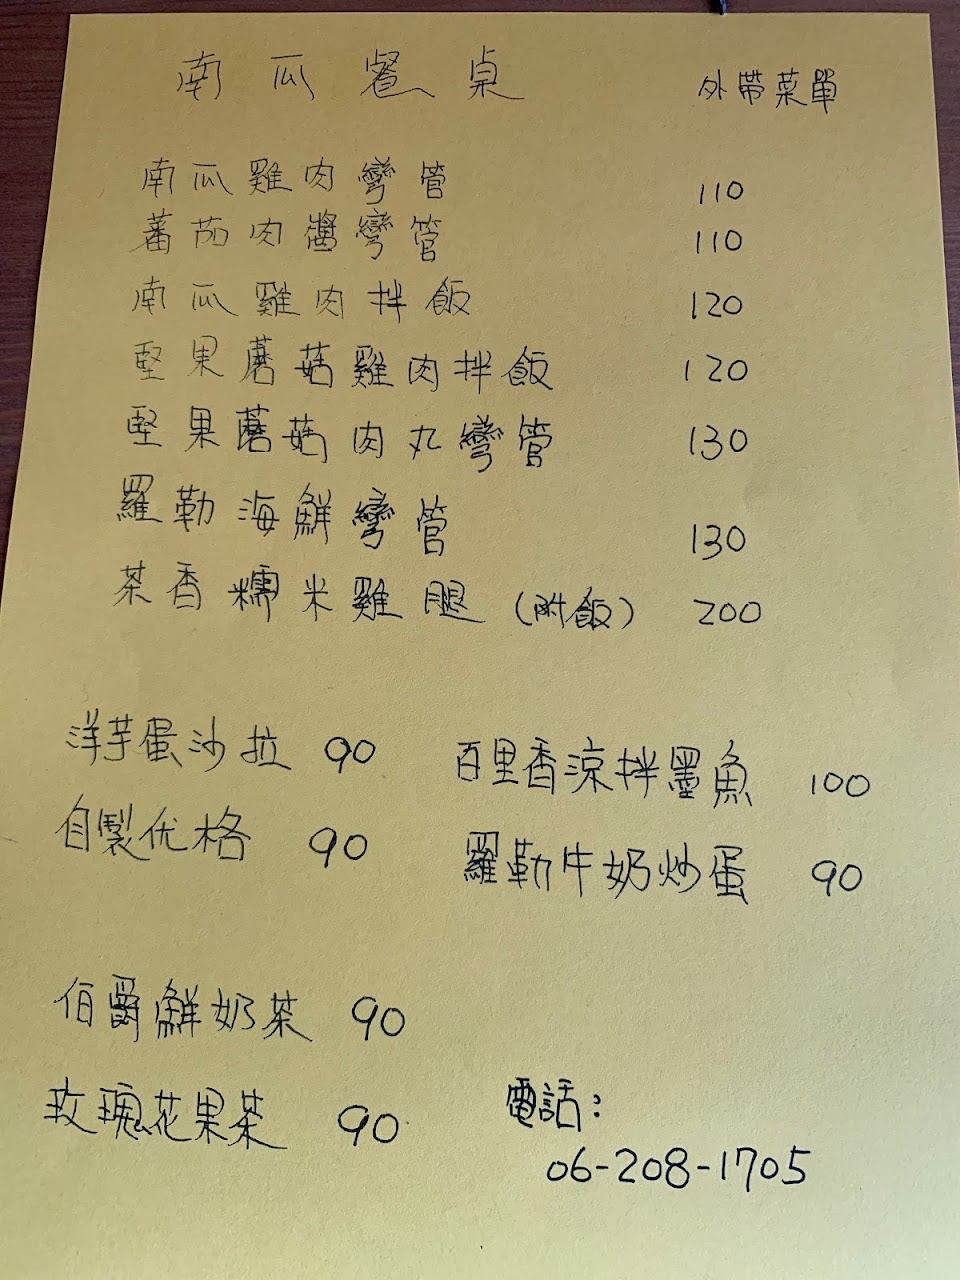 南瓜餐桌 外帶菜單
南瓜雞肉彎管 110
蕃茄肉醬彎管 110
南瓜雞肉拌飯 120
堅果蘑菇雞肉拌飯 120
堅果蘑菇肉丸彎管 130
羅勒海鮮彎管 130
茶香糯米雞腿(附飯) 200
洋芋蛋沙拉 90 百里香涼拌墨魚 100
自製优格 90 羅勒牛奶炒蛋 90
伯爵鮮奶茶 90
玫瑰花果茶 90
電話:
06-208-1705